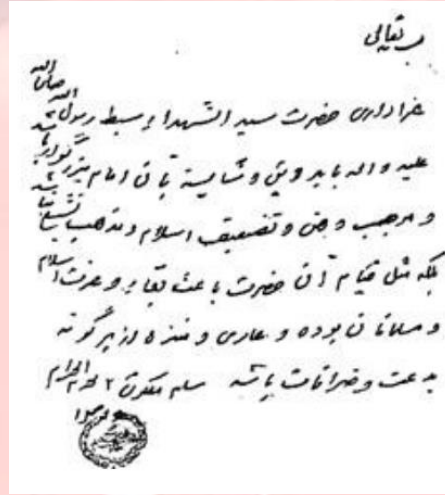 بسمه تعالی
عزاداری حضرت سید الشهداء سبط رسول الله صلی الله
علیه و اله باید وزین و شایسته بآن امام بزرگوار باشد
و موجب وهن و تضعیف اسلام و مذهب تشیع نباشد
بلکه مثل قیام آن حضرت باعث بقاء و عزت اسلام
و مسلمانان بوده و عاری و منزه از هرگونه
بدعت و خرافات باشد سلام علیکم ۲ محرم الحرام